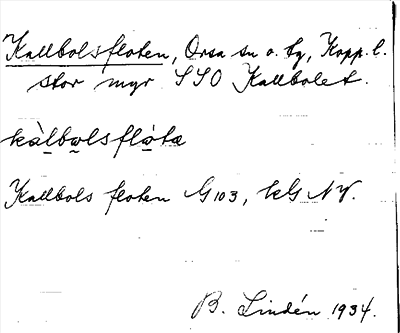 Kallbolsfloten, Orsa sn o. by, Kopp. l.
stor myr SSO Kallbolet.
kàlbo̲lsflo̲ta
Kallbols floten G 103, kG NV.
B. Lindén 1934.